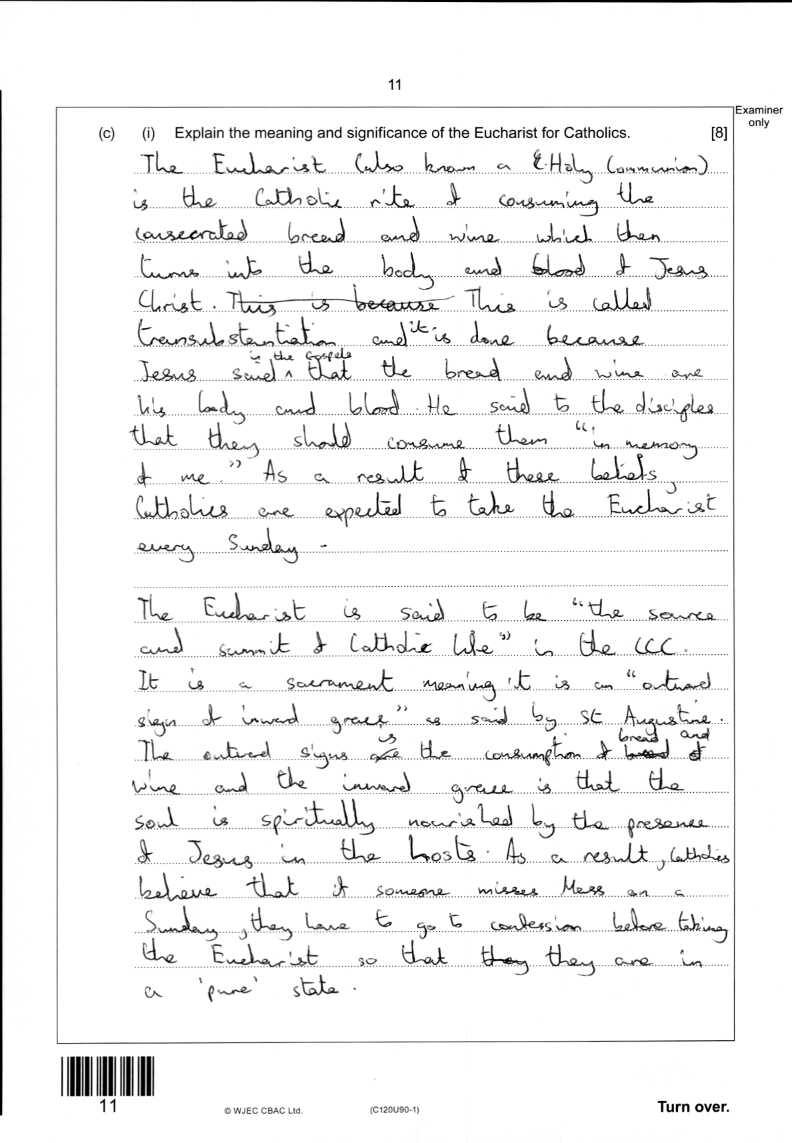 11
Examiner
only
(c) (i) Explain the meaning and significance of the Eucharist for Catholics. [8]
The Eucharist (also known a Holy Communion)
is the Catholic rite of consuming the
consecrated bread and wine which then
turns into the body and blood of Jesus
Christ. This is because This is called
transubstantiation and it is done because
Jesus said in the Gospels that the bread and wine are
his body and blood. He said to the disciples
that they should consume them "in memory
of me." As a result of these beliefs,
Catholics are expected to take the Eucharist
every Sunday -
The Eucharist is said to be "the source
and summit of Catholic life" in the CCC.
It is a sacrament meaning it is an "outward
sign of inward grace" as said by St Augustine.
The outward signs is the consumption of bread and
wine and the inward grace is that the
soul is spiritually nourished by the presence
of Jesus in the hosts. As a result, Catholics
believe that if someone misses Mass on a
Sunday, they have to go to confession before taking
the Eucharist so that they they are in
a 'pure' state.
11
© WJEC CBAC Ltd.
(C120U90-1)
Turn over.